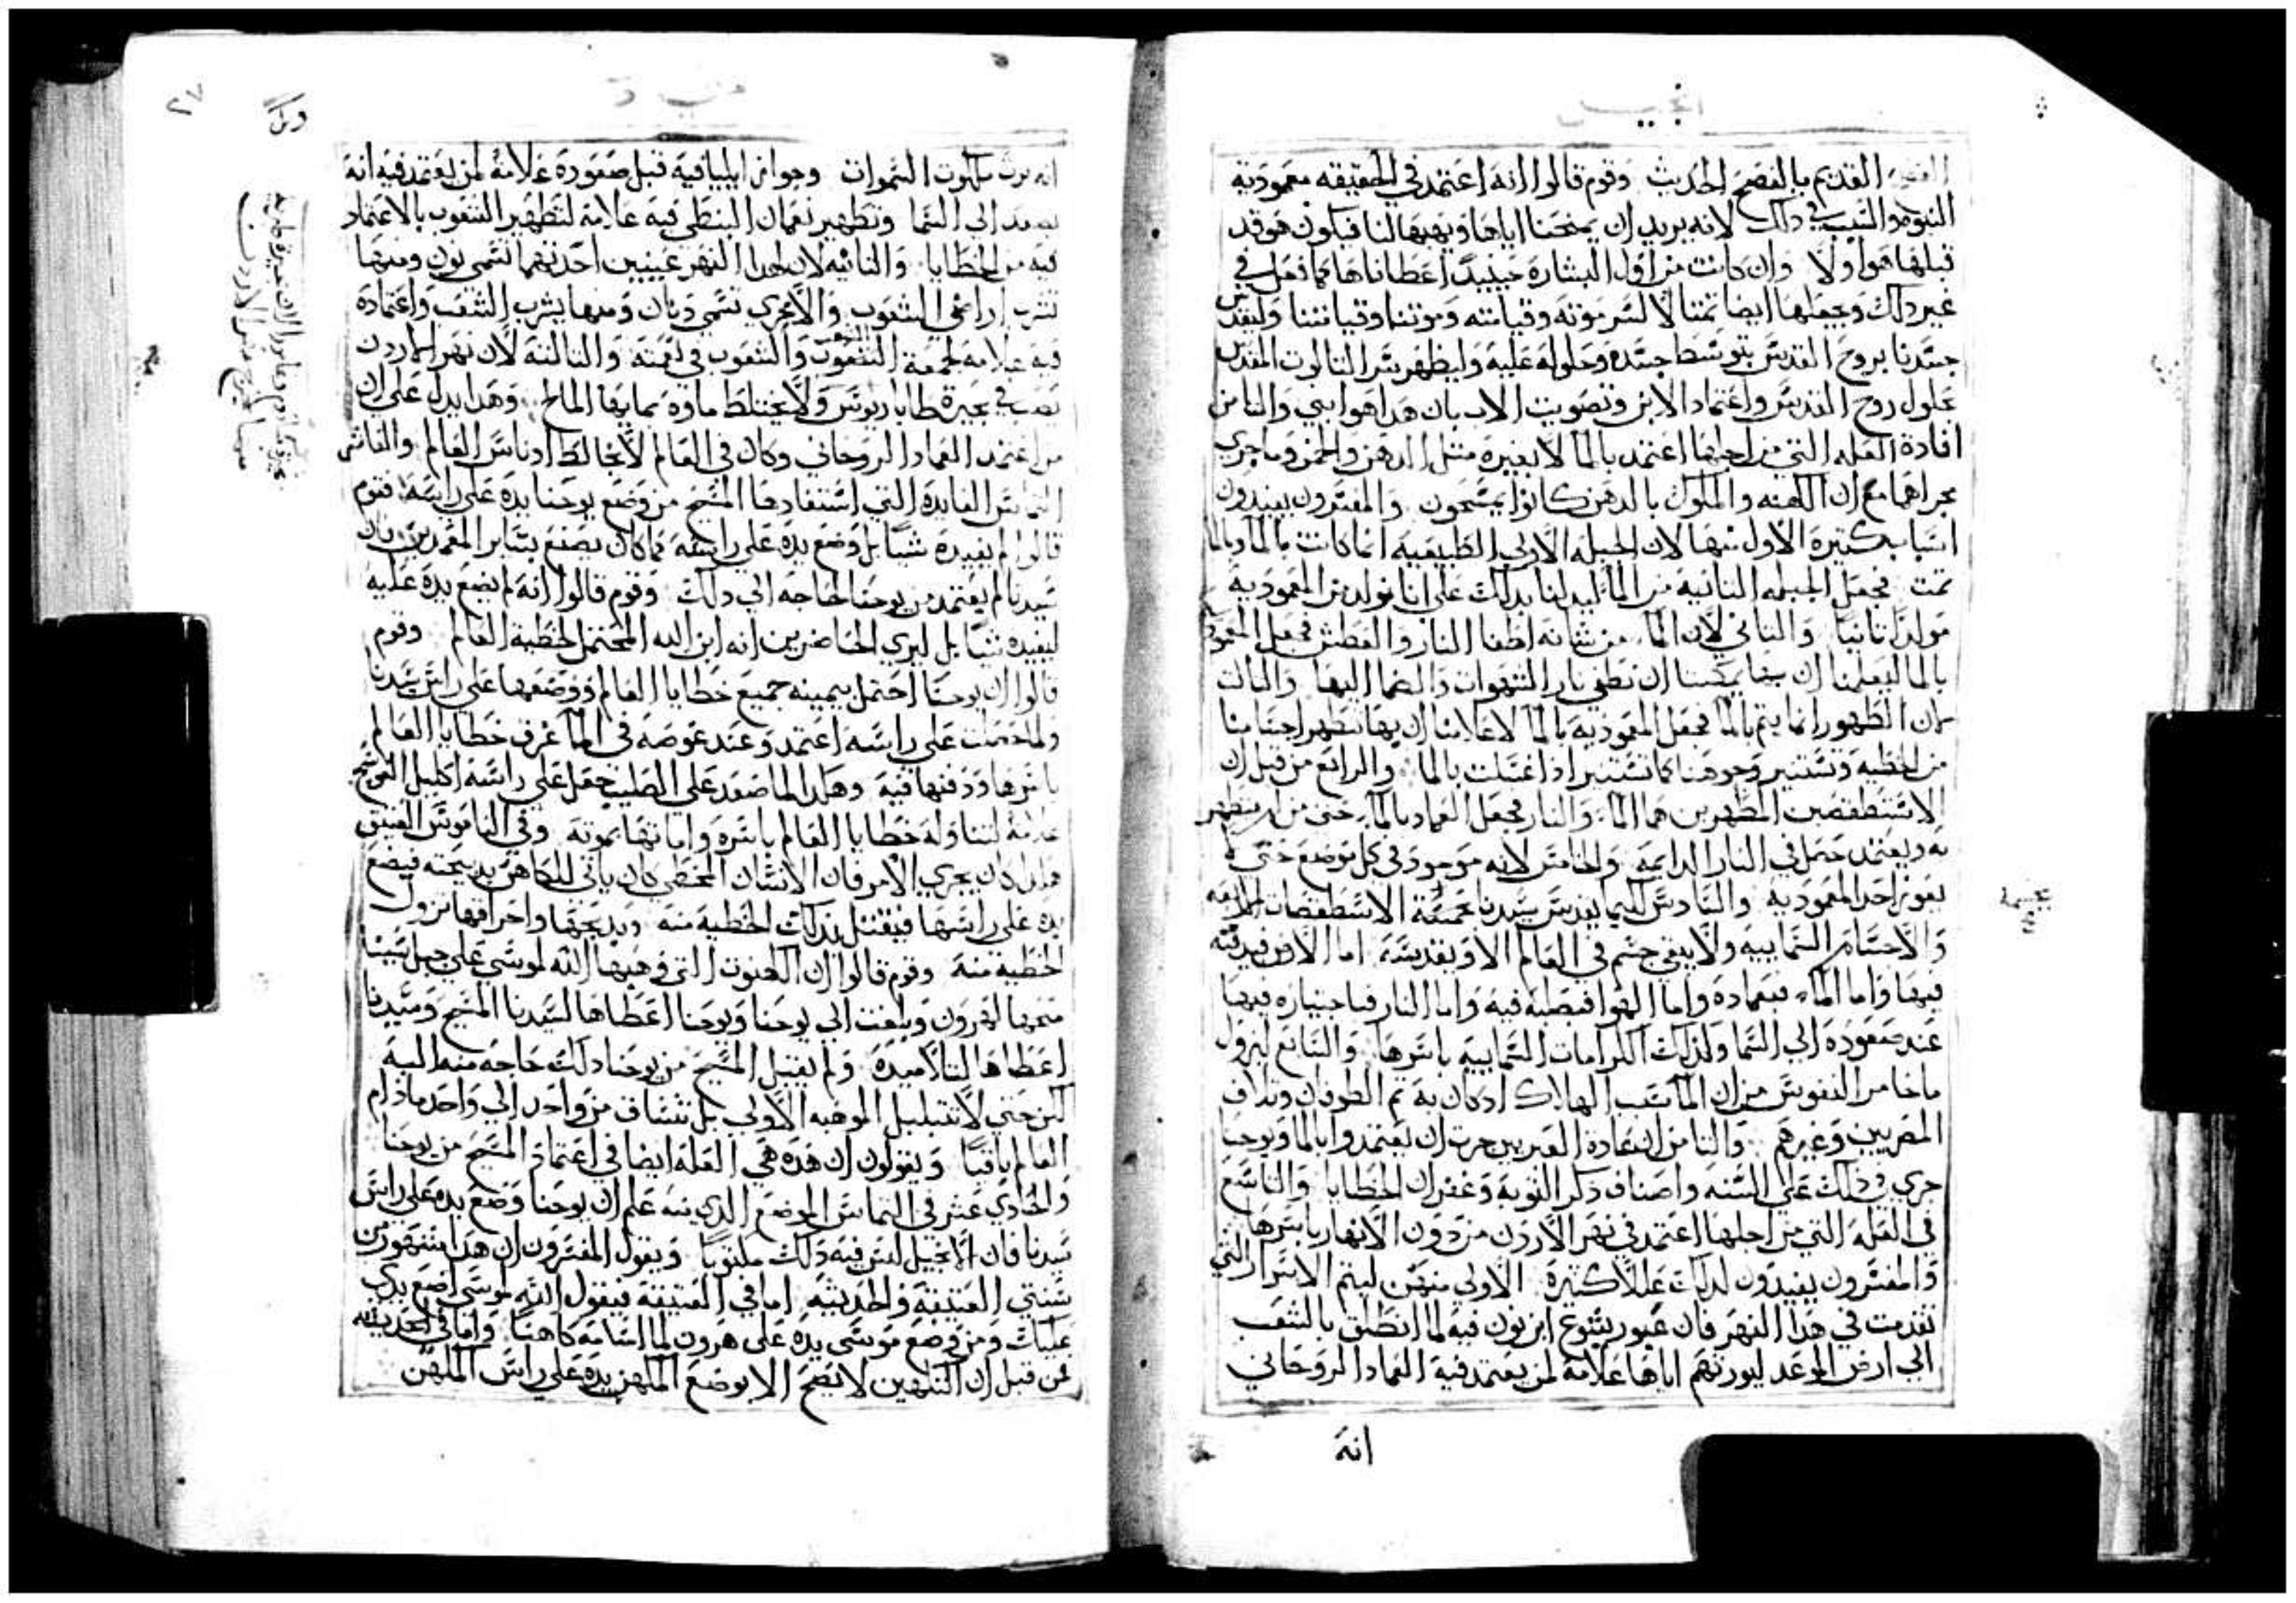 انجيل
القديم بالفصح الحديث وقوم قالوا انه اعتمد في الحقيقه معمودية
البنوه والسبب في ذلك لانه يريد ان يمنحنا اياها ويهبها لنا فيكون هو قد
قبلها هوا ولا وان كانت من اول البشارة حينيد اعطاناها كما فعل في
غير دلك ويجعلها ايضا تمتالا لسر موته وقيامته وموتنا وقيامتنا وليقدس
جسدنا بروح القدس بتوسط جسده وحلوله عليه وليظهر سر التالوت المقدس
بحلول روح القدس واعتماد الابن وتصويت الاب بان هدا هو ابني والتامن
افادة العله التي من اجلها اعتمد بالما لا بغيره متل الدهن والخمر وما جري
مجراهما مع ان الكهنه والملوك بالدهن كانوا يمسحون والمفسرون يفيدون
اسبابا كتيرة الاول منها لان الجبله الاولي الطبيعيه انما كانت بالما وبالما
تمت فجعل الجبله التانيه من الما ليدلنا بدلك علي انا نولد من المعمودية
مولدا تانيا والتاني لان الما من شانه اطفا النار والعطش فجعل المعمودية
بالما ليعلمنا ان بها يمكننا ان نطفي نار الشهوات والضما اليها والتالت
لان الطهور انما يتم بالما فجعل المعمودية بالما لاعلامنا ان بها تتطهر اجسامنا
من الخطيه وتستنير وجوهنا كما تستنير ادا اغتسلت بالما والرابع من قبل ان
الاسطقصين المطهرين هما الما والنار فجعل العماد بالما حتي من لم يتطهر
به ويعتمد حصل في النار الدايمه والخامس لانه موجود في كل موضع حتي لا
يعوز احد المعمودية والسادس كيما يقدس سيدنا جميع الاسطقصات الاربعه
والاجسام السمايية ولا يبقي جسم في العالم الا ويقدسه اما الارض فبدفنه
فيها واما الما فبعماده واما الهوا فبصلبه فيه واما النار فباجتيازه فيها
عند صعوده الي السما وكدلك الكرامات السمايية باسرها والسابع ليزول
ما خامر النفوس من ان الما سبب الهلاك ادكان به تم الطوفان وتلاف
المصريين وغيرهم والتامن ان عادة العبريين جرت ان يعتمدوا بالما ويوحنا
جري في دلك علي السنه واضاف دكر التوبة وغفران الخطايا والتاسع
في العله التي من اجلها اعتمد في نهر الاردن من دون الانهار باسرها
والمفسرون يفيدون لدلك عللا كتيرة الاولي منهن ليتم الاسرار التي
تقدمت في هدا النهر فان عبور يشوع ابن نون فيه لما انطلق بالشعب
الي ارض الموعد ليورتهم اياها علامة لمن يعتمد فيه العماد الروحاني
انه
متي
انه يرت ملكوت السموات وجواز ايليا فيه قبل صعوده علامة لمن يعتمد فيه انه
يصعد الي السما وتطهير نعمان النبطي فيه علامة لتطهير الشعوب بالاعتماد
فيه من الخطايا والتانيه لان لهدا النهر عينين احدتهما تسمي نون ومنها
تشرب اراضي الشعوب والاخري تسمي دنان ومنها يشرب الشعب واعتماده
فيه علامة لجمعه الشعب والشعوب في بيعته والتالتة لان نهر الاردن
يصب في بحيرة طاباريوس ولا يختلط ماوه بمايها المالح وهدا يدل علي ان
من اعتمد العماد الروحاني وكان في العالم لا يخالط ادناس العالم والعاشر
التماس الفايدة التي استفادها المسيح من وضع يوحنا يده علي راسه فقوم
قالوا لم يفيده شيا بل وضع يده علي راسه كما كان يصنع بساير المعمدين وان
سيدنا لم يعتمد من يوحنا لحاجه الي دلك وقوم قالوا انه لم يضع يده عليه
ليفيده شيا بل ليري الحاضرين انه ابن الله المحتمل لخطية العالم وقوم
قالوا ان يوحنا احتمل بيمينه جميع خطايا العالم ووضعها علي راس سيدنا
ولما حصلت علي راسه اعتمد وعند غوصه في الما غرق خطايا العالم
باسرها ودفنها فيه وهكدا لما صعد علي الصليب جعل علي راسه اكليل العوسج
علامة لتناوله خطايا العالم باسره واماتها بموته وفي الناموس العتيق
هكدا كان يجري الامر فان الانسان المخطي كان ياتي للكاهن بدبيحته فيضع
يده علي راسها فينتقل بدلك الخطية منه وبدبحها واحراقها تزول
الخطية منه وقوم قالوا ان الكهنوت التي وهبها الله لموسي علي جبل سينا
منحها لهرون وبلغت الي يوحنا ويوحنا اعطاها لسيدنا المسيح وسيدنا
اعطاها لتلاميده ولم يقبل المسيح من يوحنا دلك حاجه منه اليه
لكن حتي لا تتبلبل الموهبه الاولي بل تنساق من واحد الي واحد مادام
العالم باقيا ويقولون ان هده هي العله ايضا في اعتماد المسيح من يوحنا
والحادي عشر في التماس الموضع الدي منه علم ان يوحنا وضع يده علي راس
سيدنا فان الانجيل ليس فيه دلك مكتوبا ويقول المفسرون ان هدا مشهور من
سنتي العتيقة والحديثه اما في العتيقة فيقول الله لموسي اضع يدي
عليك ومن وضع موسي يده علي هرون لما اسامه كاهنا واما في الحديثه
فمن قبل ان التكهين لا تصح الا بوضع المكهن يده علي راس المكهن